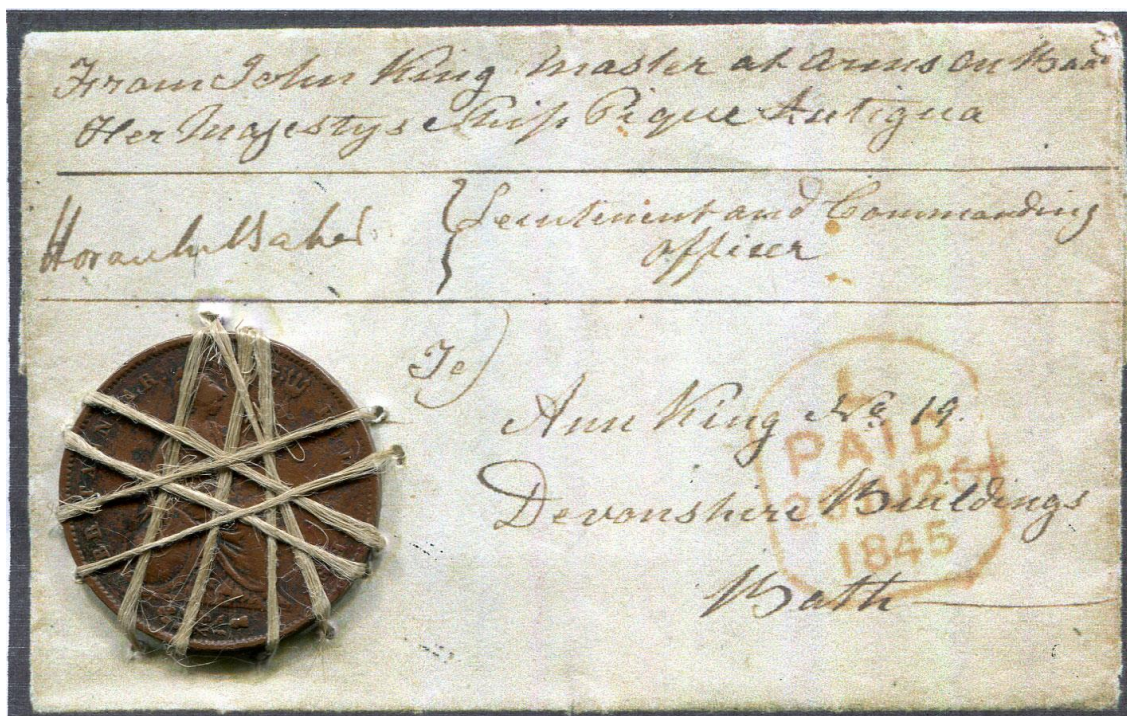 From John King Master at Arms On Board
Her Majestys Ship Pique Antigua
Lieutenent and Commanding
officer
To)
Ann King No 19.
Devonshire Buildings
Bath
L
PAID
1845